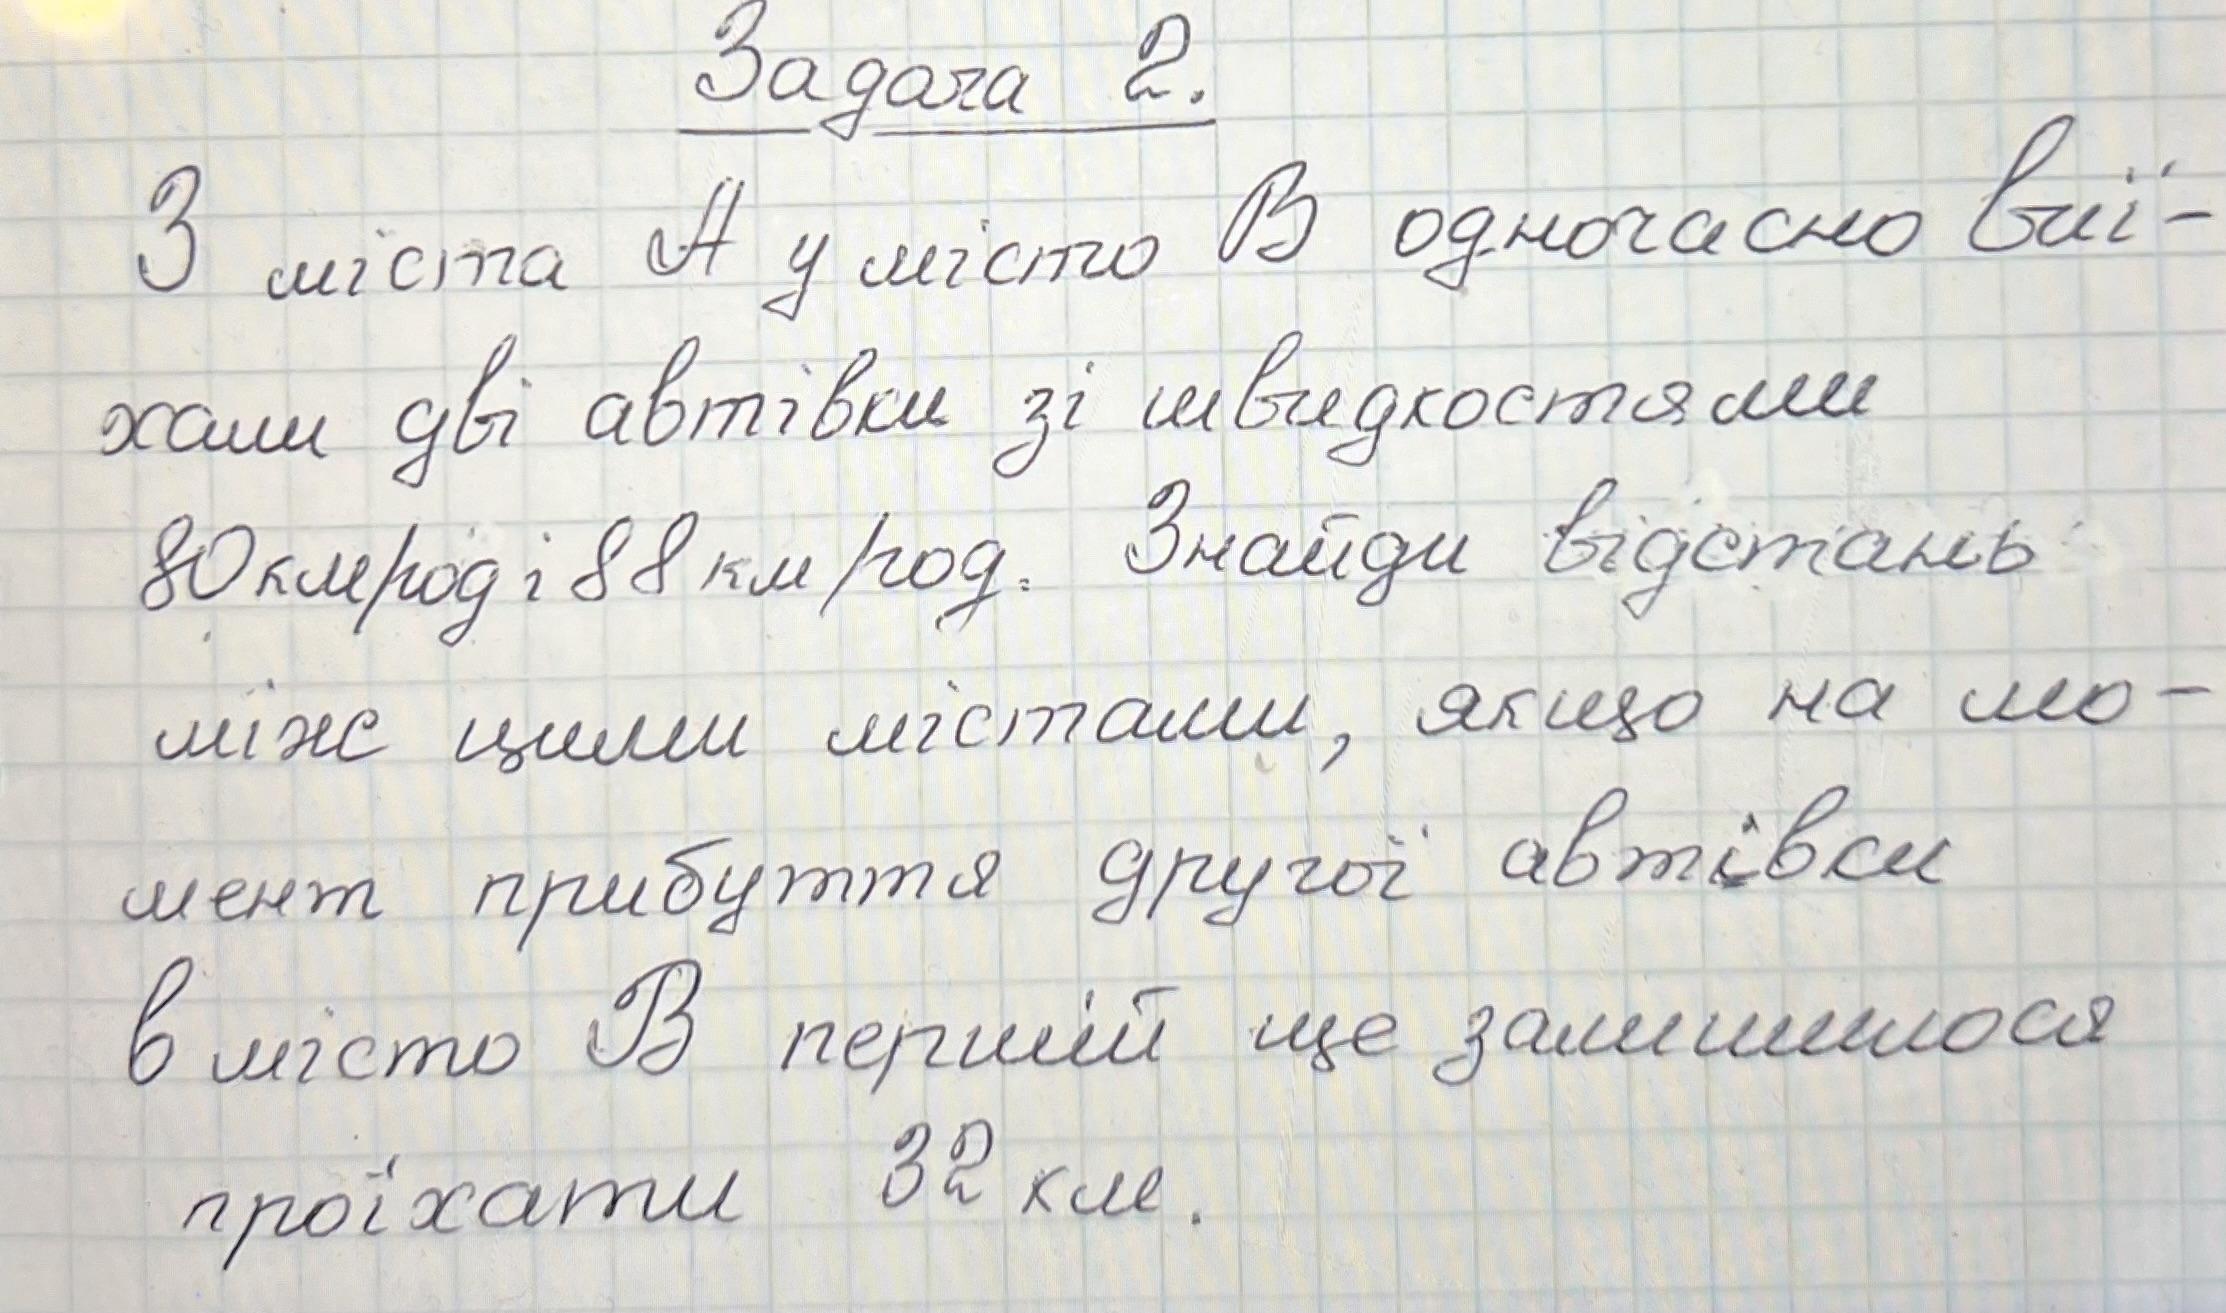 Задача 2.
З міста А у місто В одночасно виї-
хали дві автівки зі швидкостями
80км/год і 88км/год. Знайди відстань
між цими містами, якщо на мо-
мент прибуття другої автівки
в місто В першій ще залишилося
проїхати 32 км.